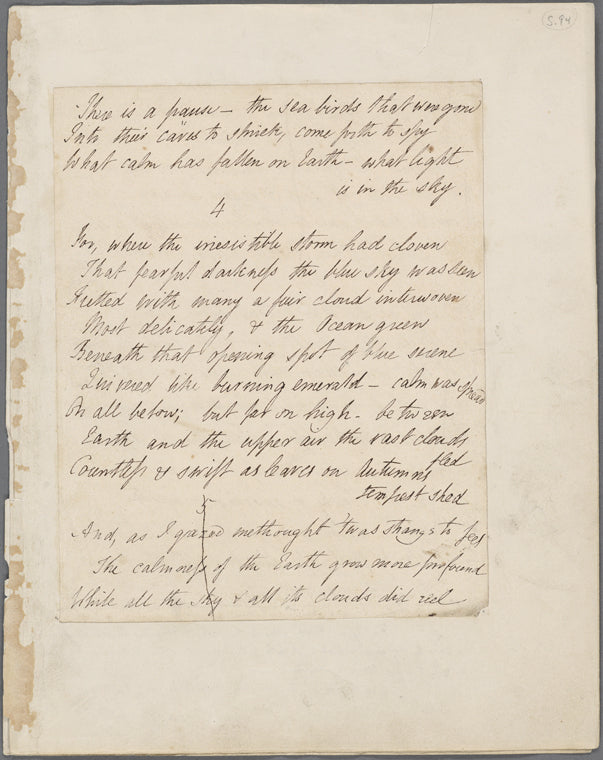 S.94
There is a pause – the sea birds that were gone
Into their caves to shriek, come forth to spy
What calm has fallen on Earth – what light
is in the sky.
4
For, where the irresistible storm had cloven
That fearful darkness the blue sky was seen
Fretted with many a fair cloud interwoven
Most delicately, & the Ocean green
Beneath that opening spot of blue serene
Quivered like burning emerald – calm was spread
On all below; but far on high – between
Earth and the upper air the vast clouds
fled
Countless & swift as leaves on Autumn's
tempest shed
5
And, as I gazed methought 'twas strange to feel
The calmness of the Earth grow more profound
While all the sky & all its clouds did reel